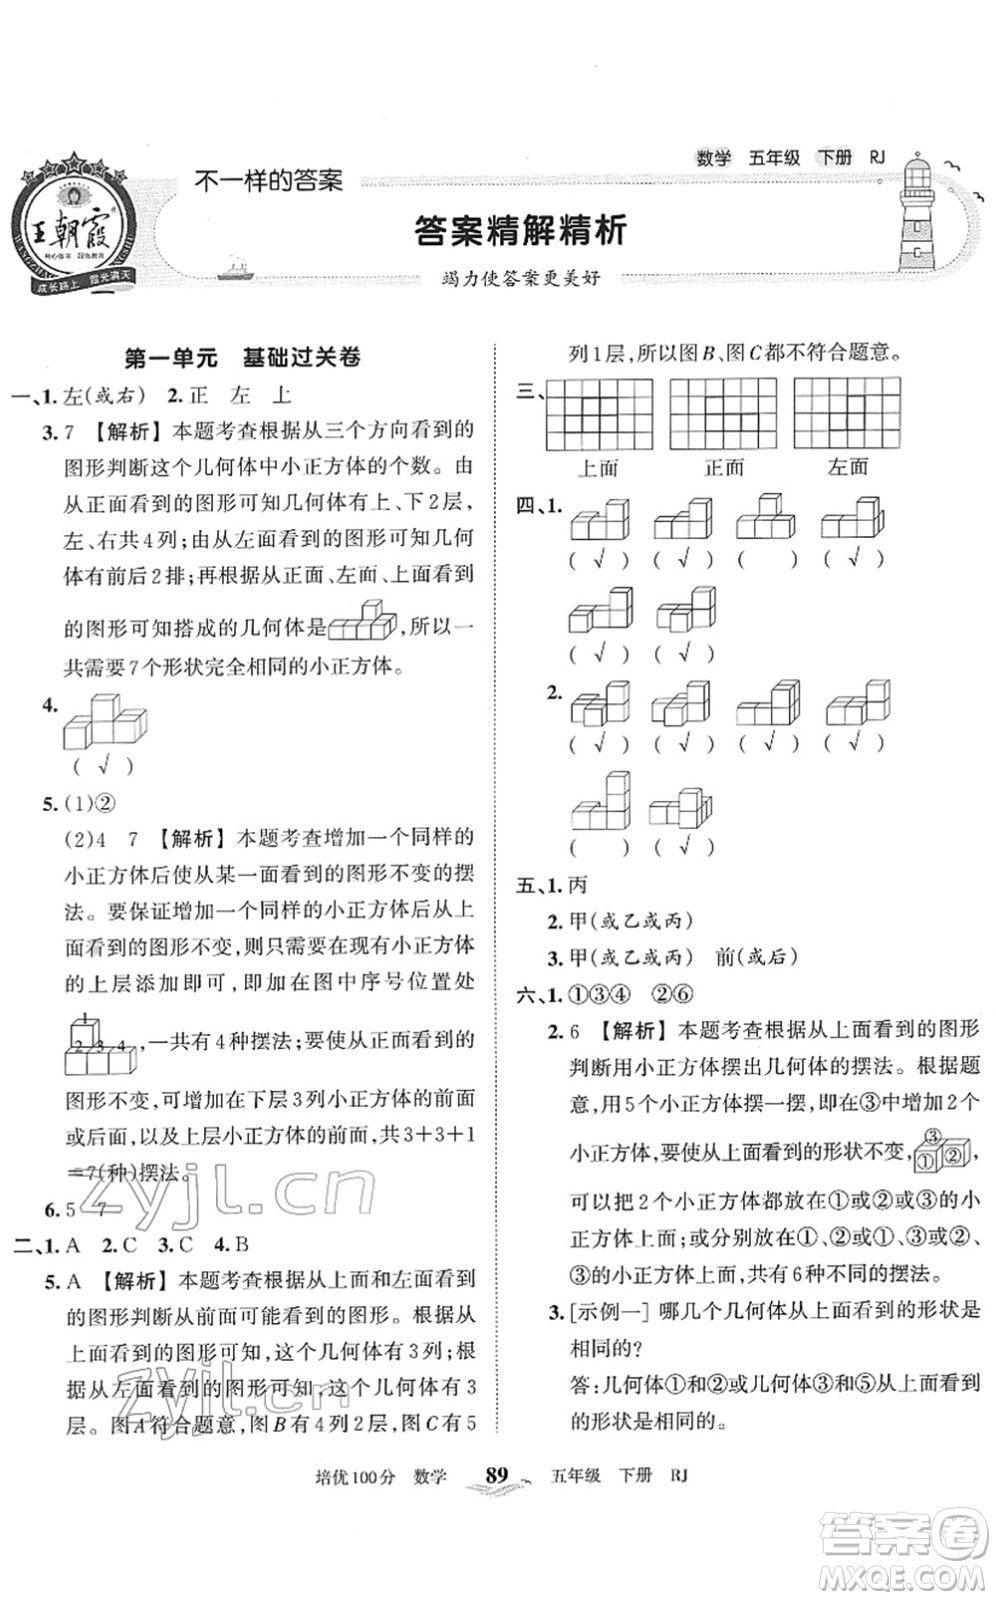 数学 五年级 下册 RJ
不一样的答案
王朝霞®
成长路上 霞光满天
答案精解精析
竭力使答案更美好
第一单元 基础过关卷
一、1. 左(或右) 2. 正 左 上
3. 7 【解析】本题考查根据从三个方向看到的
图形判断这个几何体中小正方体的个数。由
从正面看到的图形可知几何体有上、下2层,
左、右共4列;由从左面看到的图形可知几何
体有前后2排;再根据从正面、左面、上面看到
的图形可知搭成的几何体是 ,所以一
共需要7个形状完全相同的小正方体。
4.
( √ )
5. (1)②
(2)4 7 【解析】本题考查增加一个同样的
小正方体后使从某一面看到的图形不变的摆
法。要保证增加一个同样的小正方体后从上
面看到的图形不变,则只需要在现有小正方体
的上层添加即可,即如在图中序号位置处
1
2 3 4 ,一共有4种摆法;要使从正面看到的
图形不变,可增加在下层3列小正方体的前面
或后面,以及上层小正方体的前面,共3+3+1
=7(种)摆法。
6. 5 7
二、1. A 2. C 3. C 4. B
5. A 【解析】本题考查根据从上面和左面看到
的图形判断从前面可能看到的图形。根据从
上面看到的图形可知,这个几何体有3列;根
据从左面看到的图形可知,这个几何体有3
层。图A符合题意,图B有4列2层,图C有5
列1层,所以图B、图C都不符合题意。
三、
上面 正面 左面
四、1.
( ) ( √ ) ( ) ( √ )
( √ ) ( √ )
2.
( √ ) ( √ ) ( √ ) ( √ )
( ) ( √ )
五、1. 丙
2. 甲(或乙或丙)
3. 甲(或乙或丙) 前(或后)
六、1. ①③④ ②⑥
2. 6 【解析】本题考查根据从上面看到的图形
判断用小正方体摆出几何体的摆法。根据题
意,用5个小正方体摆一摆,即在③中增加2个
小正方体,要使从上面看到的形状不变, ③①② ,
可以把2个小正方体都放在①或②或③的小
正方体上面,也可以分别放在①②、①③、
②③的小正方体上面,共有6种不同的摆法。
3. [示例一] 哪几个几何体从上面看到的形状是
相同的?
答:几何体①和②或几何体③和⑤从上面看到
的形状是相同的。
培优100分 数学 89 五年级 下册 RJ
zyjl.cn
zyjl.cn
答案卷
MXQE.COM